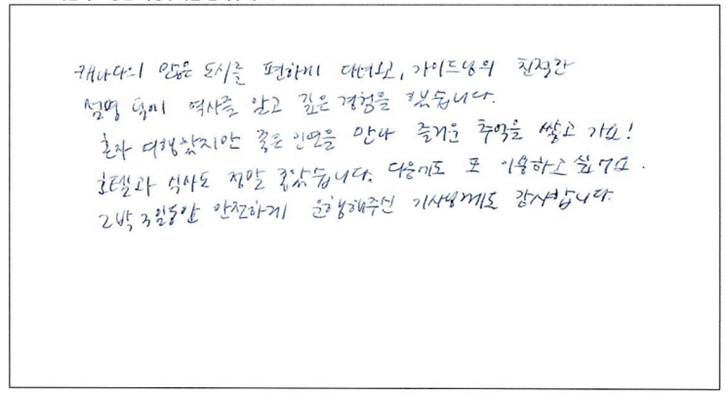 캐나다의 많은 도시를 편하게 다녀오고, 가이드님의 친절한
설명 덕에 역사를 알고 깊은 경험을 했습니다.
혼자 여행왔지만 좋은 인연을 만나 즐거운 추억을 쌓고 가요!
호텔과 식사도 정말 좋았습니다. 다음에도 또 이용하고 싶네요.
2박 3일동안 안전하게 운행해주신 기사님께도 감사합니다.